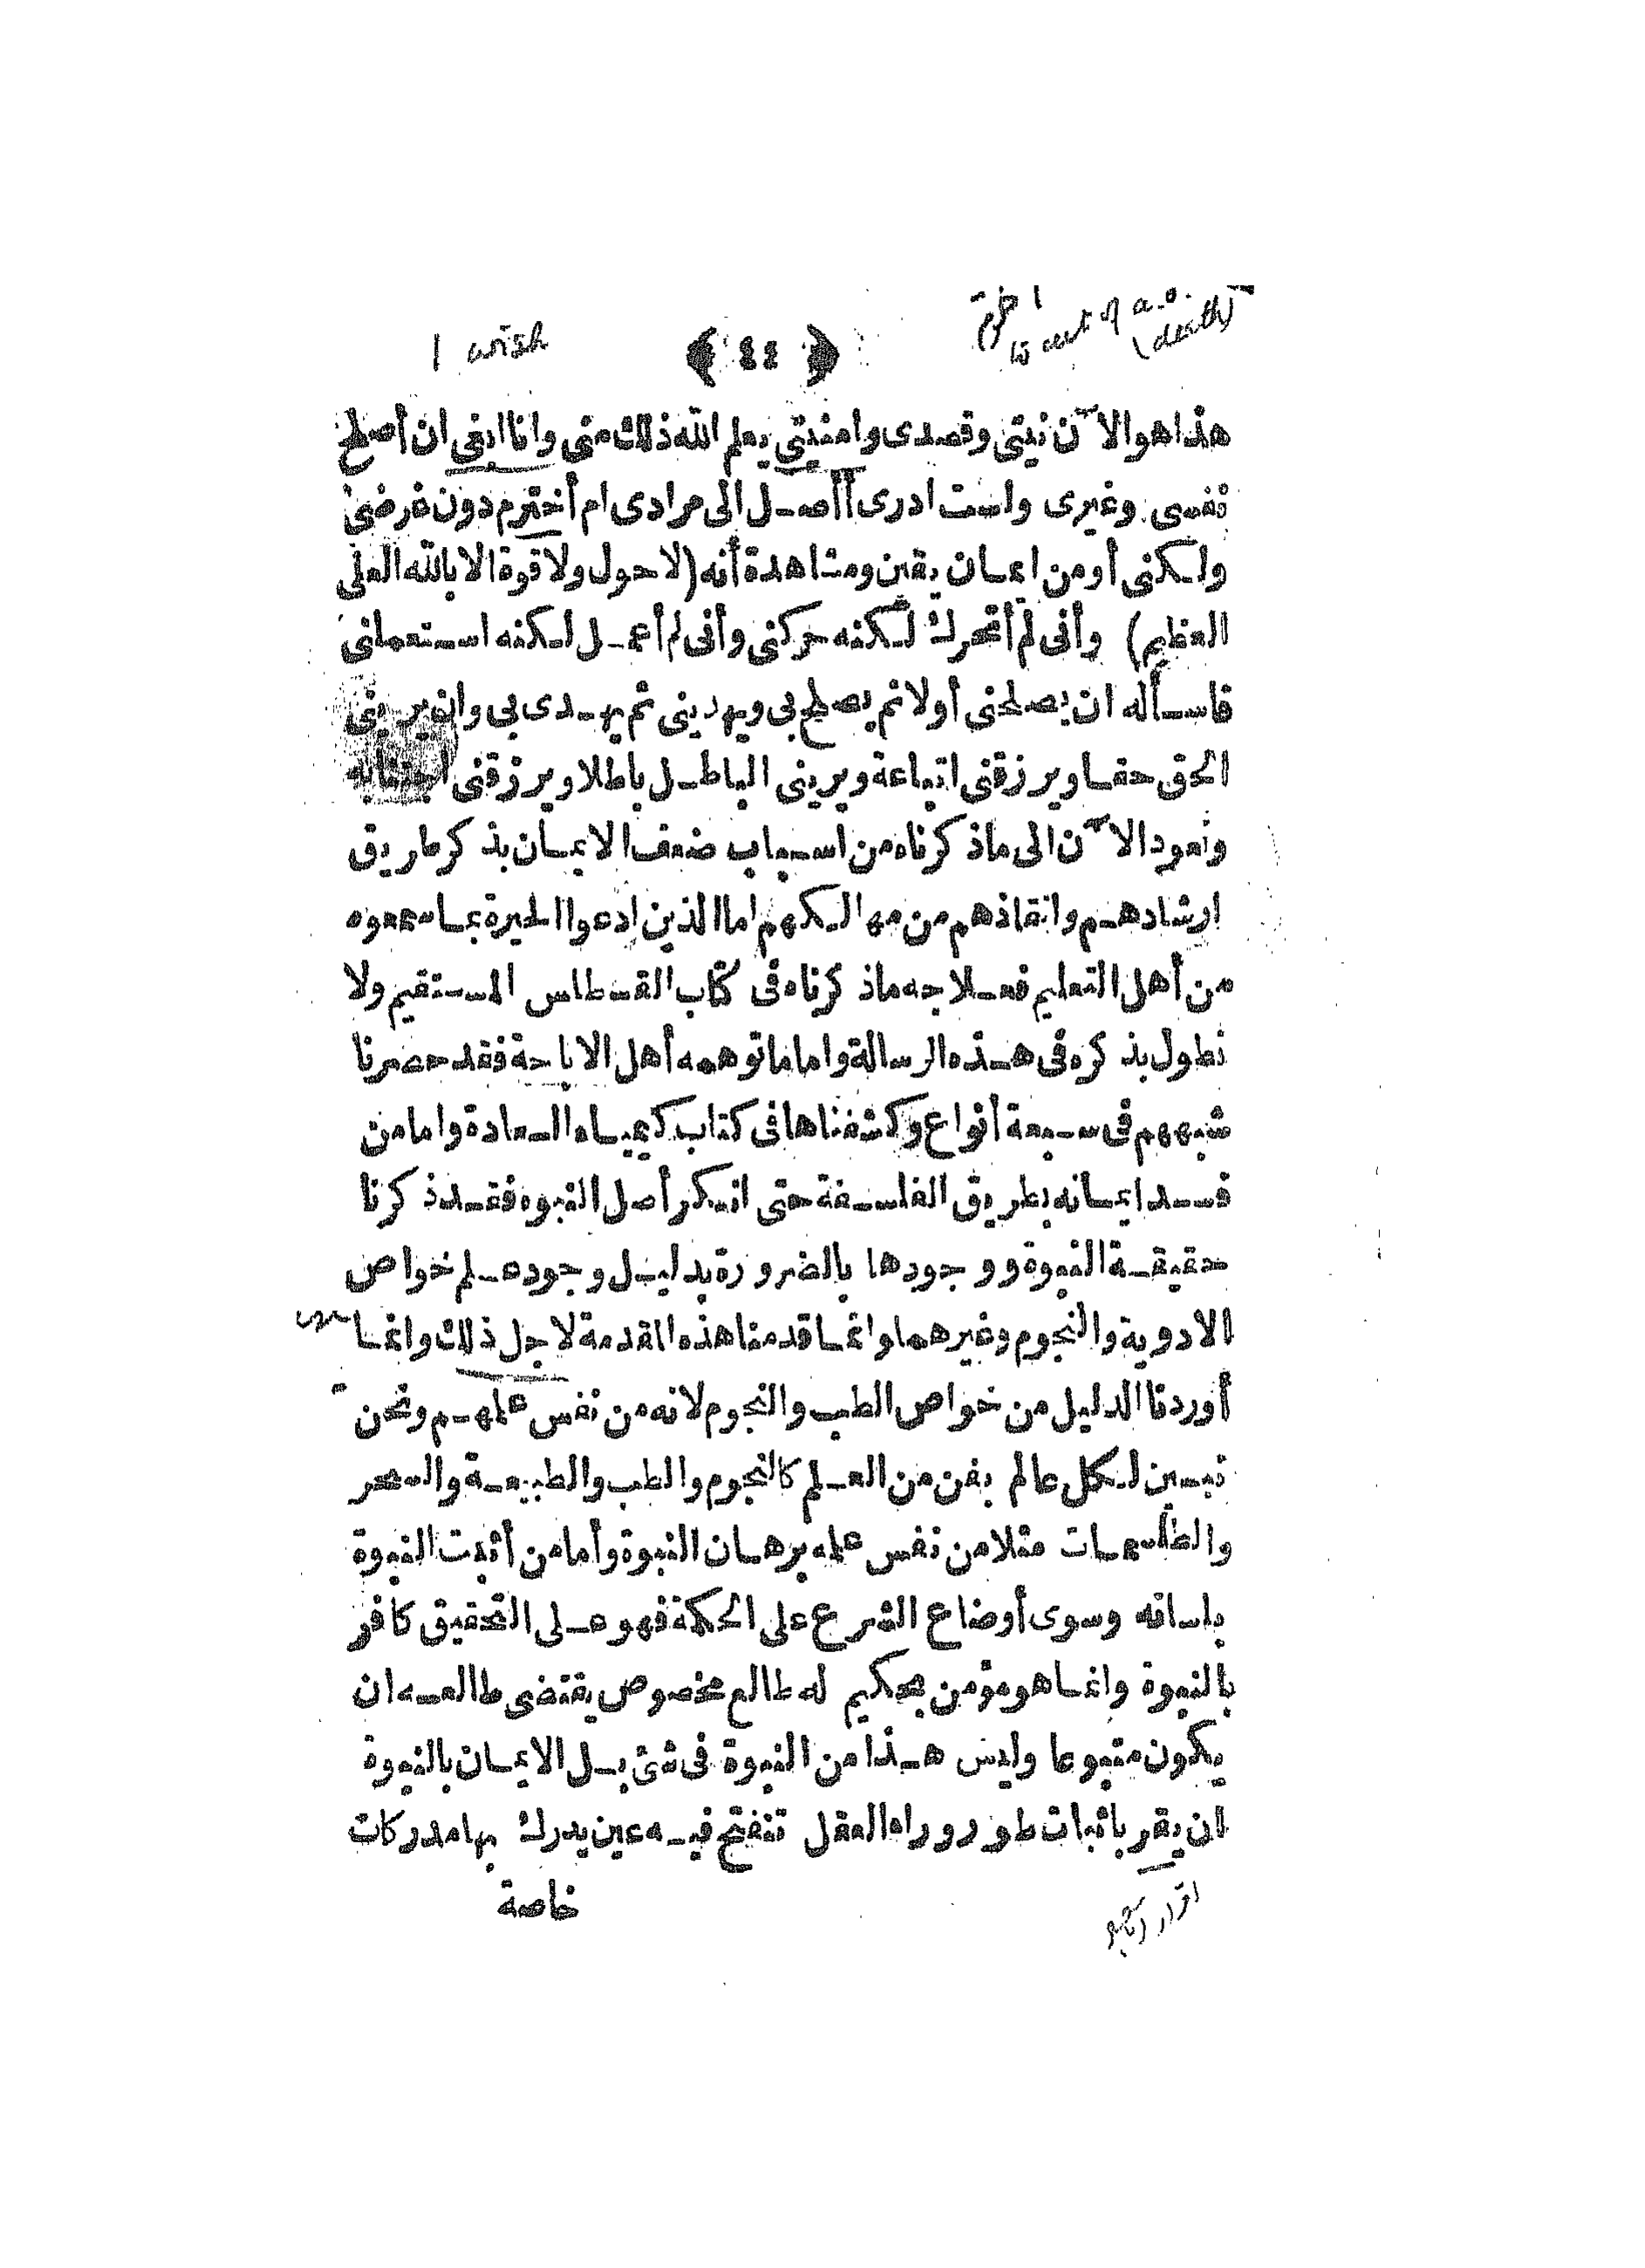 I wish
اخترم
to cut of a.o.
(death)
﴿ ٤٤ ﴾
هذا هو الآن نيتى وقصدى وامنيتي يعلم الله ذلك منى وانا ابغي ان أصلح
نفسى وغيرى ولست ادرى أأصل الى مرادى ام أخترم دون غرضى
ولكنى أومن ايمان يقين ومشاهدة أنه (لا حول ولا قوة الا بالله العلى
العظيم) وأنى لم أتحرك لكنه حركنى وأنى لم أعمل لكنه استعملنى
فاسأله ان يصلحنى أولا ثم يصلح بى ويهدينى ثم يهدى بى وان يرينى
الحق حقا ويرزقنى اتباعة ويرينى الباطل باطلا ويرزقنى اجتنابه
ونعود الآن الى ماذكرناه من اسباب ضعف الايمان بذكر طريق
ارشادهم وانقاذهم من مهالكهم اما الذين ادعوا الحيرة بما سمعوه
من أهل التعليم فعلاجه ماذكرناه فى كتاب القسطاس المستقيم ولا
نطول بذكره فى هذه الرسالة واما ما توهمه أهل الاباحة فقد حصرنا
شبههم فى سبعة أنواع وكشفناها فى كتاب كيمياء السعادة واما من
فسد ايمانه بطريق الفلسفة حتى انكر أصل النبوه فقد ذكرنا
حقيقة النبوة ووجودها بالضرورة بدليل وجود علم خواص
الادوية والنجوم وغيرهما وانما قدمنا هذه المقدمة لاجل ذلك وانما
أوردنا الدليل من خواص الطب والنجوم لانه من نفس علمهم ونحن
نبين لكل عالم بفن من العلم كالنجوم والطب والطبيعة والسحر
والطلسمات مثلا من نفس علمه برهان النبوة وأما من أثبت النبوة
بلسانه وسوى أوضاع الشرع على الحكمة فهو على التحقيق كافر
بالنبوة وانما هو مؤمن بحكيم له طالع مخصوص يقتضى طالعه ان
يكون متبوعا وليس هذا من النبوة فى شئ بل الايمان بالنبوة
ان يقر باثبات طور وراء العقل تنفتح فيه عين يدرك بها مدركات
خاصة